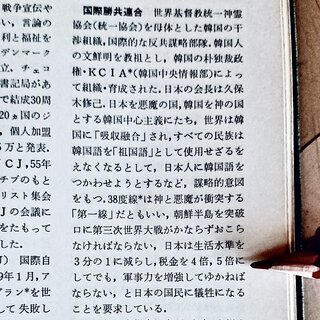 国際勝共連合　世界基督教統一神霊
協会(統一協会)を母体とした韓国の干
渉組織,国際的な反共謀略部隊．韓国人
の文鮮明を教祖とし，韓国の朴独裁政
権・KCIA*(韓国中央情報部)によっ
て組織・育成された．日本の会長は久保
木修己．日本を悪魔の国,韓国を神の国と
する韓国中心主義にたち，世界は韓国
に「吸収融合」され,すべての民族は
韓国語を「祖国語」として使用せざるを
えなくなるとして，日本人に韓国語を
つかわせようとするなど，謀略的意図
をもつ．38度線*は神と悪魔が衝突する
「第一線」だともいい，朝鮮半島を突破
口に第三次世界大戦がかならずおこら
なければならない，日本は生活水準を
3分の1に減らし,税金を4倍,5倍に
してでも，軍事力を増強してゆかねば
ならない，と日本の国民に犠牲になる
ことを要求している．
戦争宣伝や
い，言論の
利と福祉を
デンマーク
立，チェコ
書記局があ
で結成30周
20ヵ国のジ
，個人加盟
5万と発表．
CJ,55年
チブのもと
リスト集会
Jの会議に
たもたらせ
した．
J)　国際自
9年1月，ア
プラン*を世
して失敗し